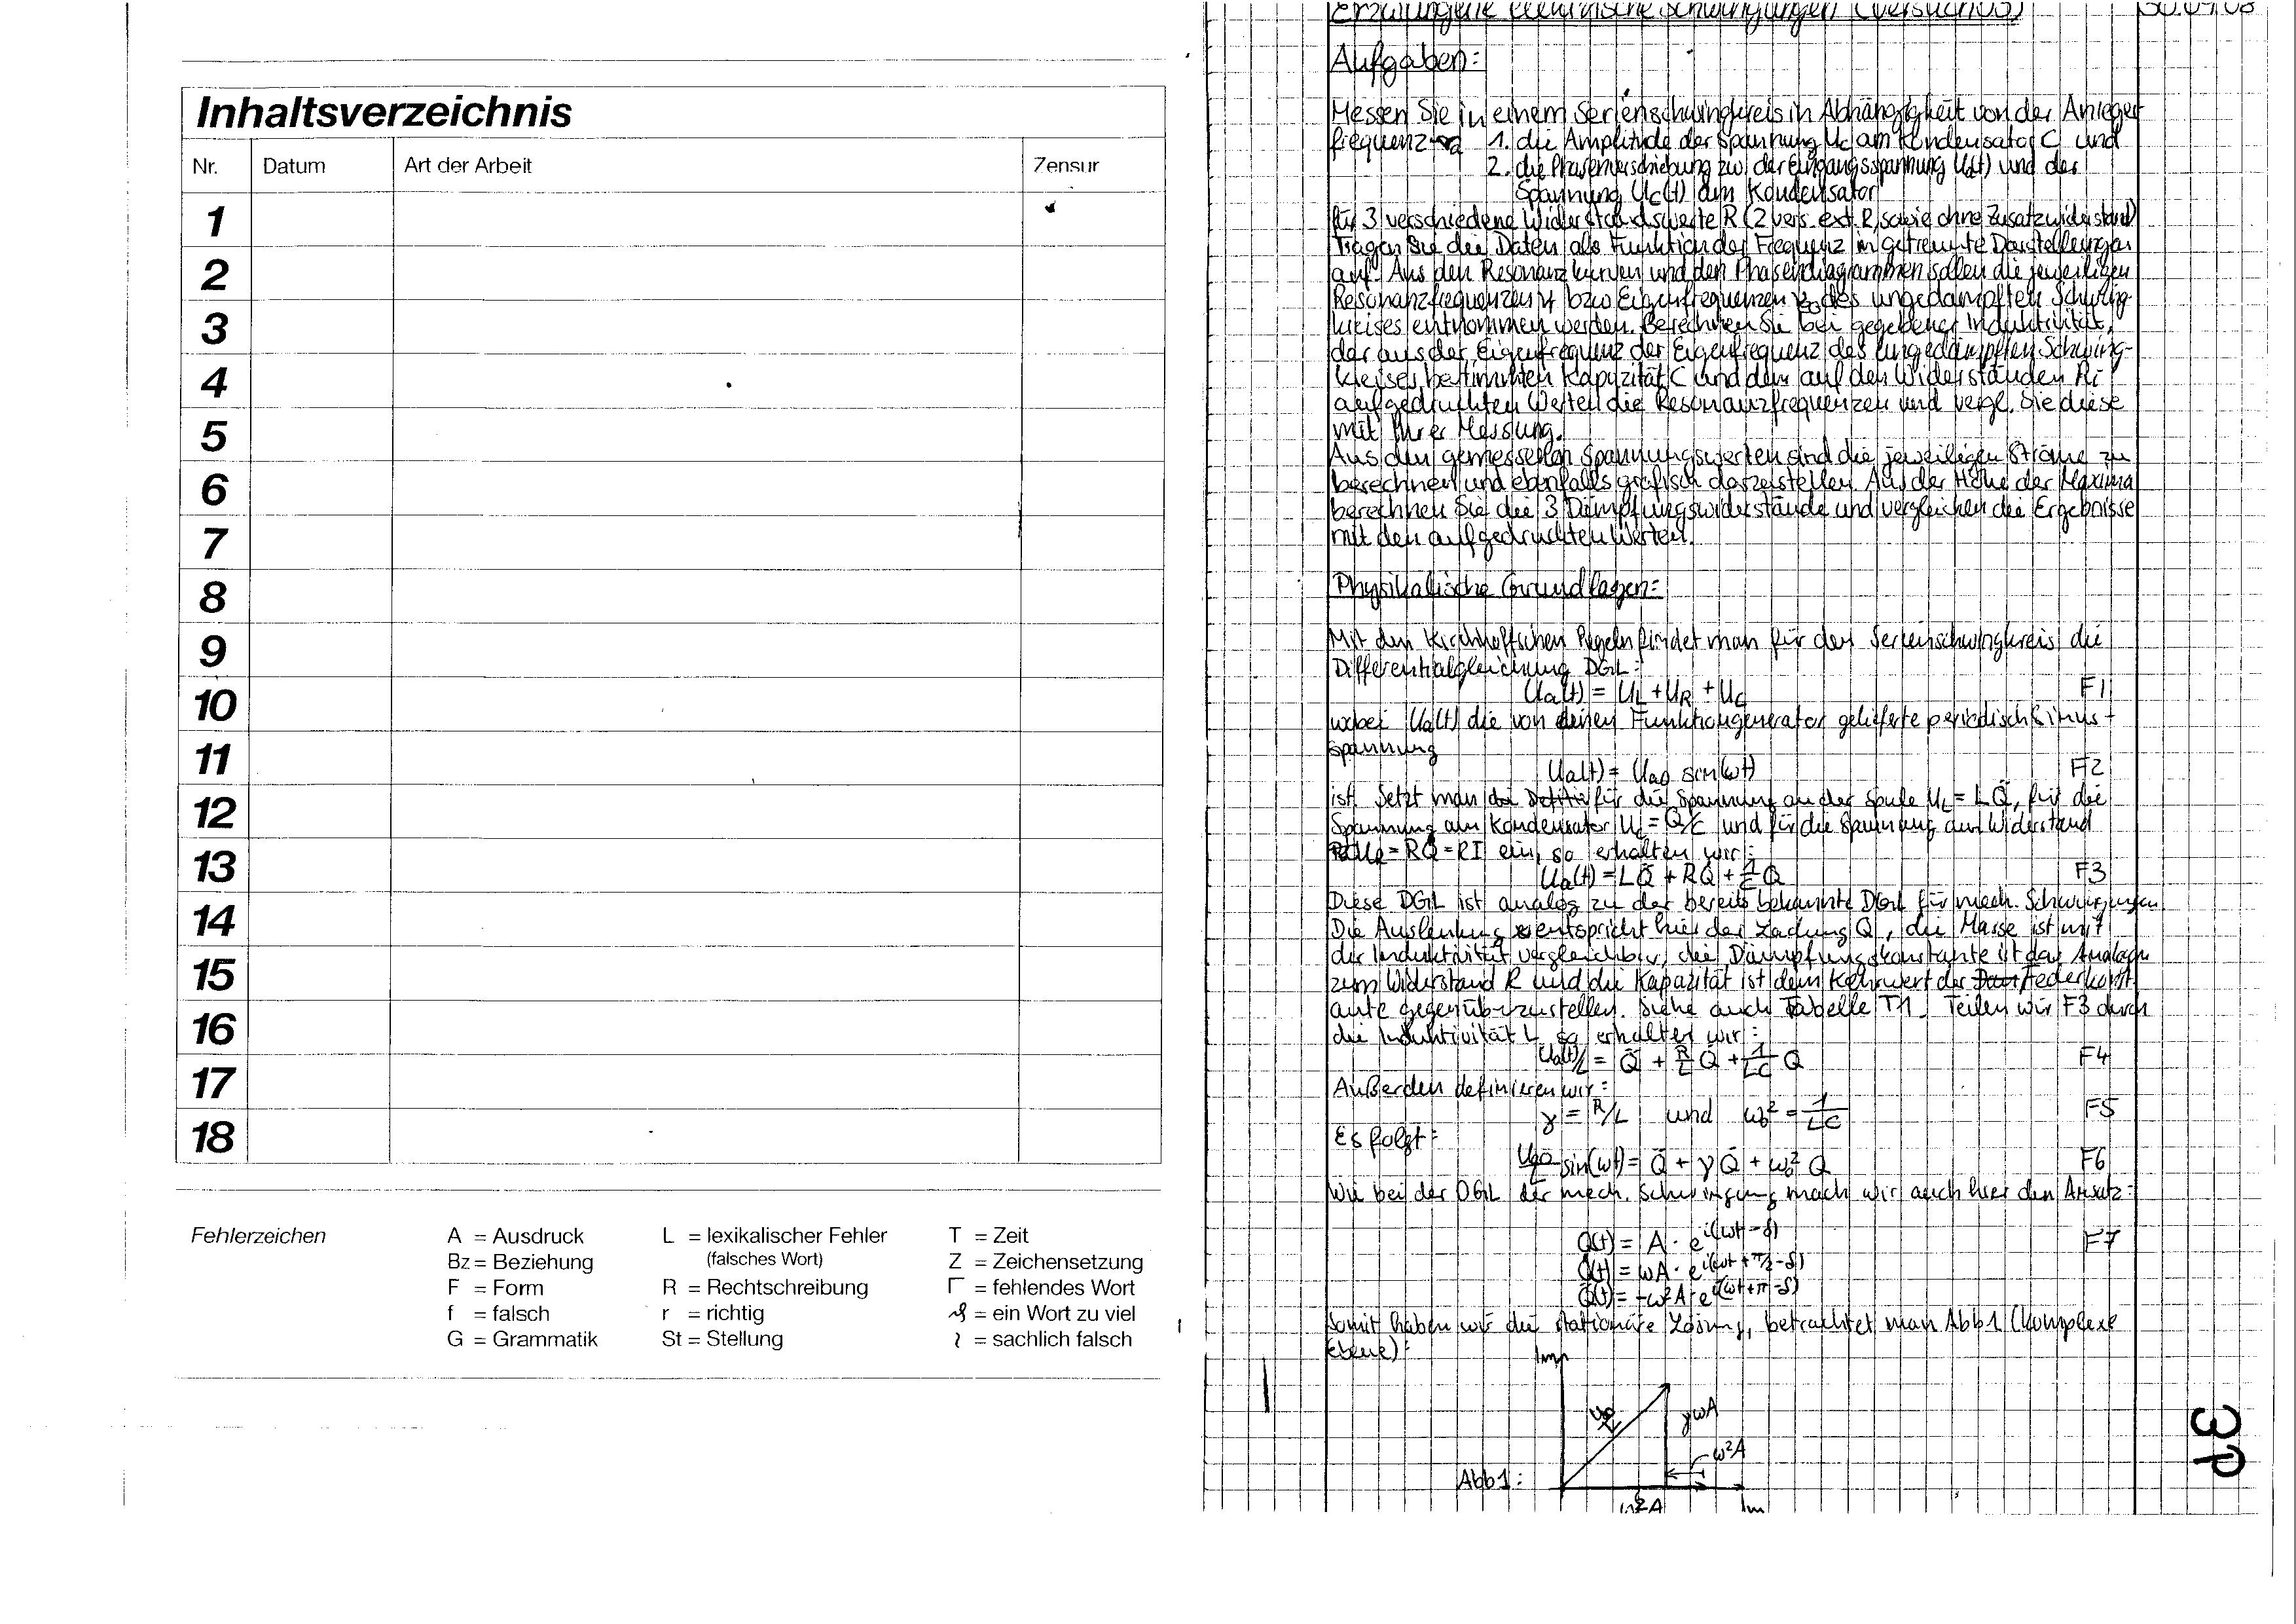 Inhaltsverzeichnis
Nr. Datum Art der Arbeit Zensur
1
2
3
4
5
6
7
8
9
10
11
12
13
14
15
16
17
18
Fehlerzeichen
A = Ausdruck
Bz = Beziehung
F = Form
f = falsch
G = Grammatik
L = lexikalischer Fehler
(falsches Wort)
R = Rechtschreibung
r = richtig
St = Stellung
T = Zeit
Z = Zeichensetzung
Γ = fehlendes Wort
= ein Wort zu viel
= sachlich falsch
Erzwungene elektrische Schwingungen (Versuch 05) 30.04.08
Aufgaben:
Messen Sie in einem Serienschwingkreis in Abhängigkeit von der Anreger
frequenz 1. die Amplitude der Spannung Uc am Kondensator C und
2. die Phasenverschiebung zw. der Eingangsspannung Ua(t) und der
Spannung Uc(t) am Kondensator
für 3 verschiedene Widerstandswerte R (2 vers. ext. R, sowie ohne Zusatzwiderstand)
Tragen Sie die Daten als Funktion der Frequenz in getrennte Darstellungen
auf. Aus den Resonanzkurven und den Phasendiagrammen sollen die jeweiligen
Resonanzfrequenzen bzw Eigenfrequenzen des ungedämpften Schwing-
kreises entnommen werden. Berechnen Sie bei gegebener Induktivität,
der aus der Eigenfrequenz der Eigenfrequenz des ungedämpften Schwing-
kreises bestimmten Kapazität C und dem auf den Widerständen Ri
aufgedruckten Werten die Resonanzfrequenzen und vergl. Sie diese
mit Ihrer Messung.
Aus den gemessenen Spannungswerten sind die jeweiligen Ströme zu
berechnen und ebenfalls grafisch darzustellen. Aus der Höhe der Maxima
berechnen Sie die 3 Dämpfungswiderstände und vergleichen die Ergebnisse
mit den aufgedruckten Werten.
Physikalische Grundlagen:
Mit den Kirchhoffschen Regeln findet man für den Serienschwingkreis die
Differentialgleichung DGL:
Ua(t) = UL + UR + UC F1
wobei Ua(t) die von einem Funktiongenerator gelieferte periodisch Sinus-
spannung
Ua(t) = Ua0 sin(ωt) F2
ist. Setzt man für die Spannung an der Spule UL = LQ̈, für die
Spannung am Kondensator Uc = Q/C und für die Spannung am Widerstand
UR = RQ̇ = RI ein, so erhalten wir:
Ua(t) = LQ̈ + RQ̇ + 1/C Q F3
Diese DGL ist analog zu der bereits bekannte DGL für mech. Schwingungen
Die Auslenkung x entspricht hier der Ladung Q, die Masse ist mit
der Induktivität vergleichbar, die Dämpfungskonstante ist das Analogn
zum Widerstand R und die Kapazität ist dem Kehrwert der Federkonst
ante gegenüberzustellen. Siehe auch Tabelle T1. Teilen wir F3 durch
die Induktivität L so erhalten wir:
Ua(t)/L = Q̈ + R/L Q̇ + 1/LC Q F4
Außerden definieren wir:
γ = R/L und ω0² = 1/LC F5
Es folgt:
sin(ωt) = Q̈ + γQ̇ + ω0² Q F6
Wie bei der DGL der mech. Schwingung mach wir auch hier den Ansatz:
Q(t) = A · e^i(ωt-δ) F7
Q̇(t) = ωA · e^i(ωt+π/2-δ)
Q̈(t) = -ω²A · e^i(ωt+π-δ)
Somit haben wir die stationäre Lösung, betrachtet man Abb1 (komplexe
Ebene):
γωA
ω²A
Abb1:
3P